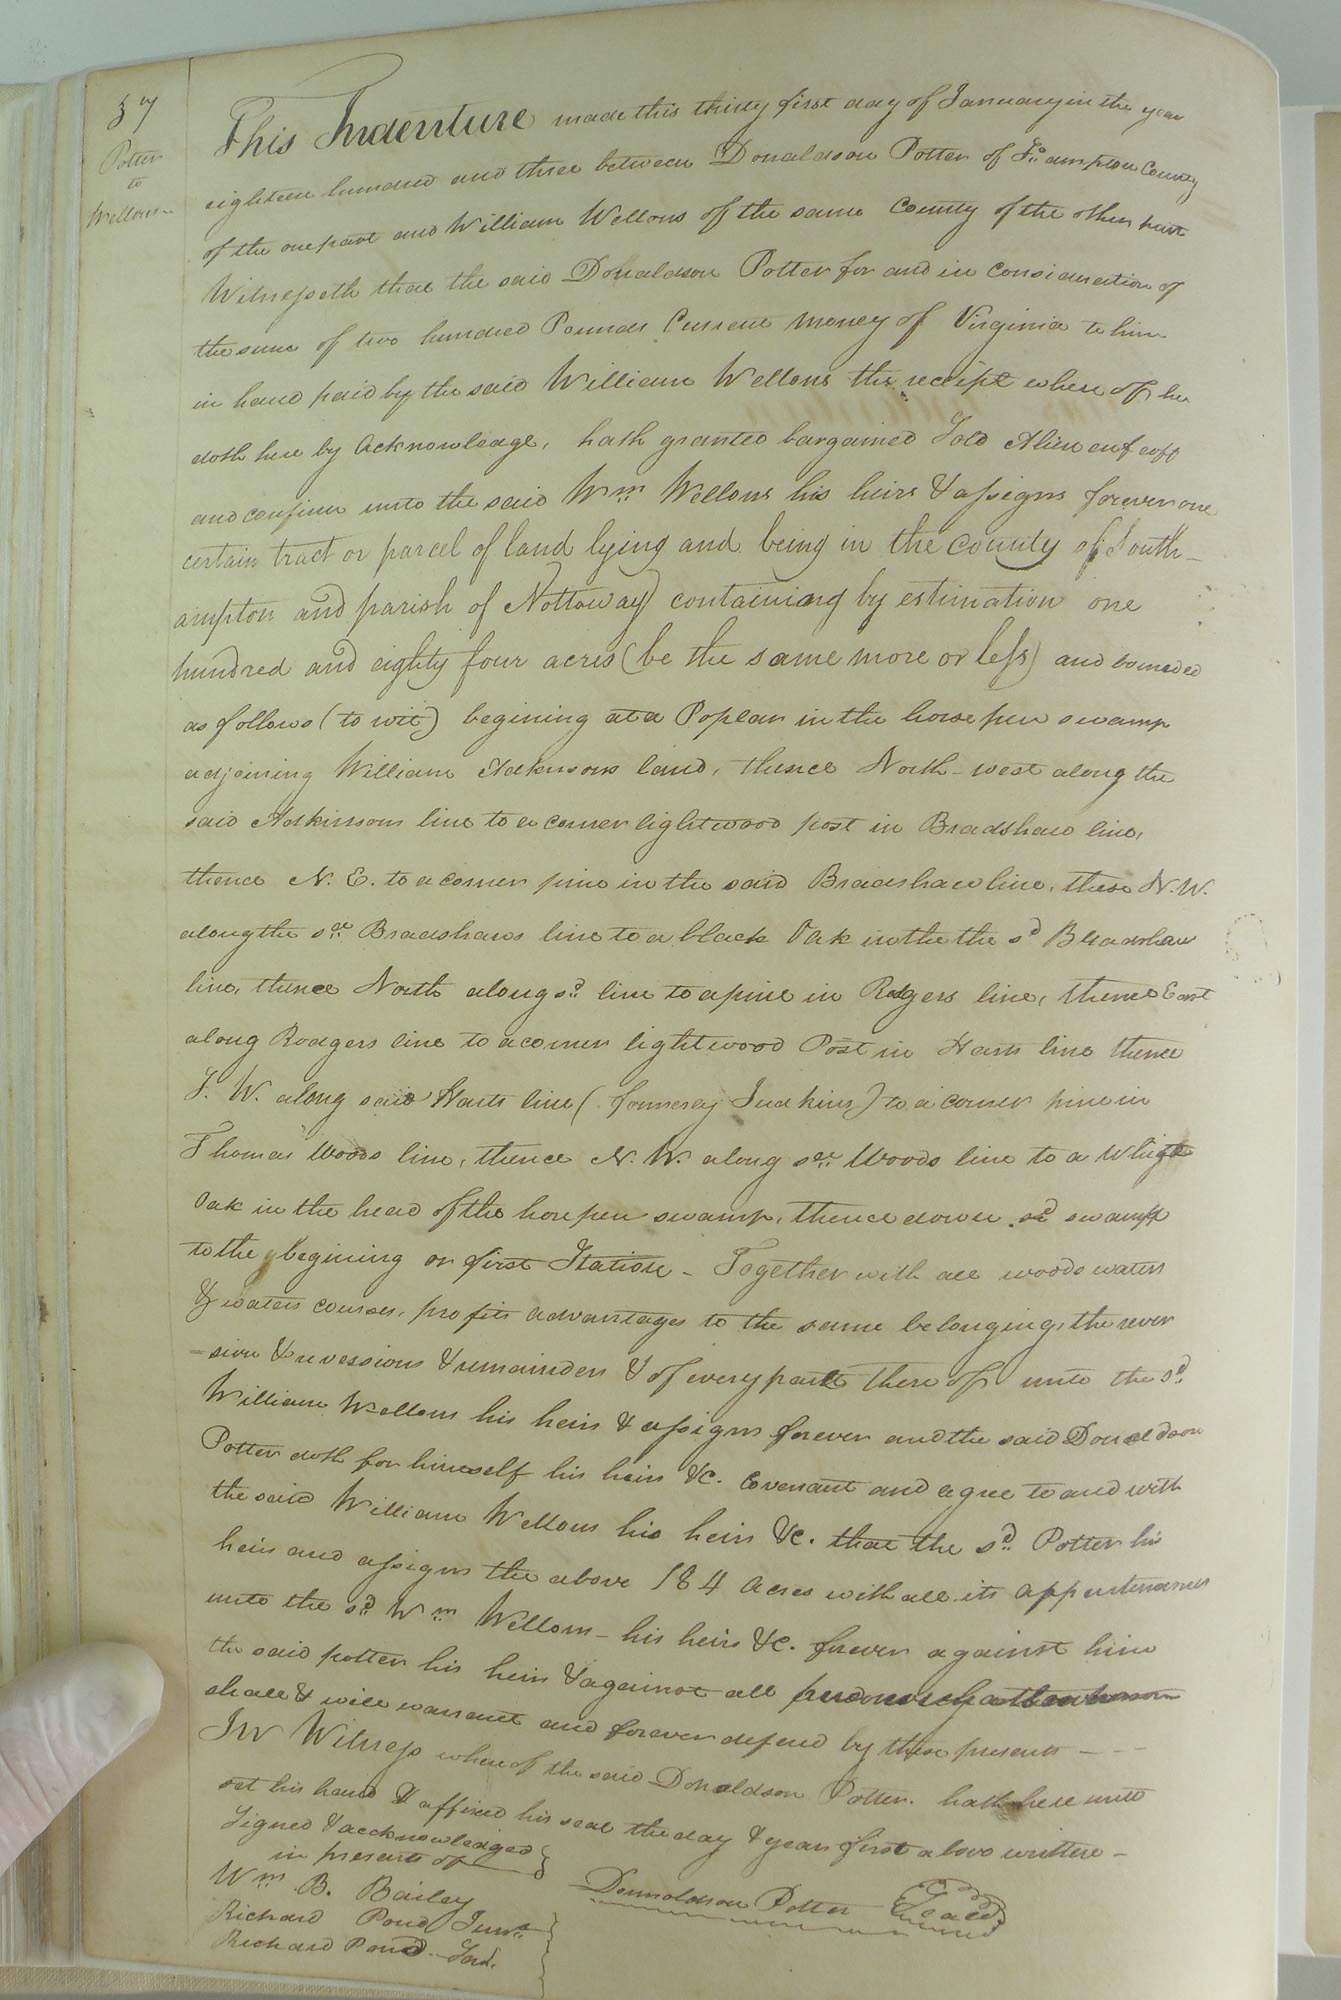 57
Potter
to
Wellons
This Indenture made this thirty first day of January in the year
eighteen hundred and three between Donaldson Potter of So:ampton County
of the one part and William Wellons of the same County of the other part
Witnesseth that the said Donaldson Potter for and in Consideration of
the sum of two hundred Pounds Current money of Virginia to him
in hand paid by the said William Wellons the receipt where of he
doth here by Acknowledge, hath granted bargained Sold Alien enfeoff
and confirm unto the said Wm Wellons his heirs & assigns forever one
certain tract or parcel of land lying and being in the county of South-
ampton and parish of Nottoway containing by estimation one
hundred and eighty four acres (be the same more or less) and bounded
as follows (to wit) begining at a Poplar in the horse pen swamp
adjoining William Adkinsons land, thence North-west along the
said Adkinsons line to a corner lightwood post in Bradshaw line,
thence N. E. to a corner pine in the said Bradshaw line, thence N.W.
along the sd. Bradshaws line to a black Oak in the the sd Bradshaw
line, thence North along sd. line to a pine in Rodgers line, thence East
along Rodgers line to a corner lightwood Post in Harts line thence
S. W. along said Harts line (formerly Judkins) to a corner pine in
Thomas Woods line, thence N. W. along sd. Woods line to a White
Oak in the head of the horse pen swamp, thence down sd swamp
to the begining or first Station - Together with all woods waters
& waters courses, profits advantages to the same belonging, the rever
-sion & revessions & remainders & of every part there of unto the sd.
William Wellons his heirs & assigns forever and the said Donaldson
Potter doth for himself his heirs &c. Covenant and agree to and with
the said William Wellons his heirs &c. that the sd. Potter his
heirs and assigns the above 184 Acres with all its appurtenances
unto the sd. Wm. Wellons - his heirs &c. forever against him
the said potter his heirs & against all persons
shall & will warrant and forever defend by these presents - - -
In Witness where of the said Donaldson Potter. hath here unto
set his hand & affixed his seal the day & year first above written -
Signed & acknowledged
in presents of
Wm. B. Bailey
Donnoldson Potter Seal
Richard Pond Junr
Richard Pond